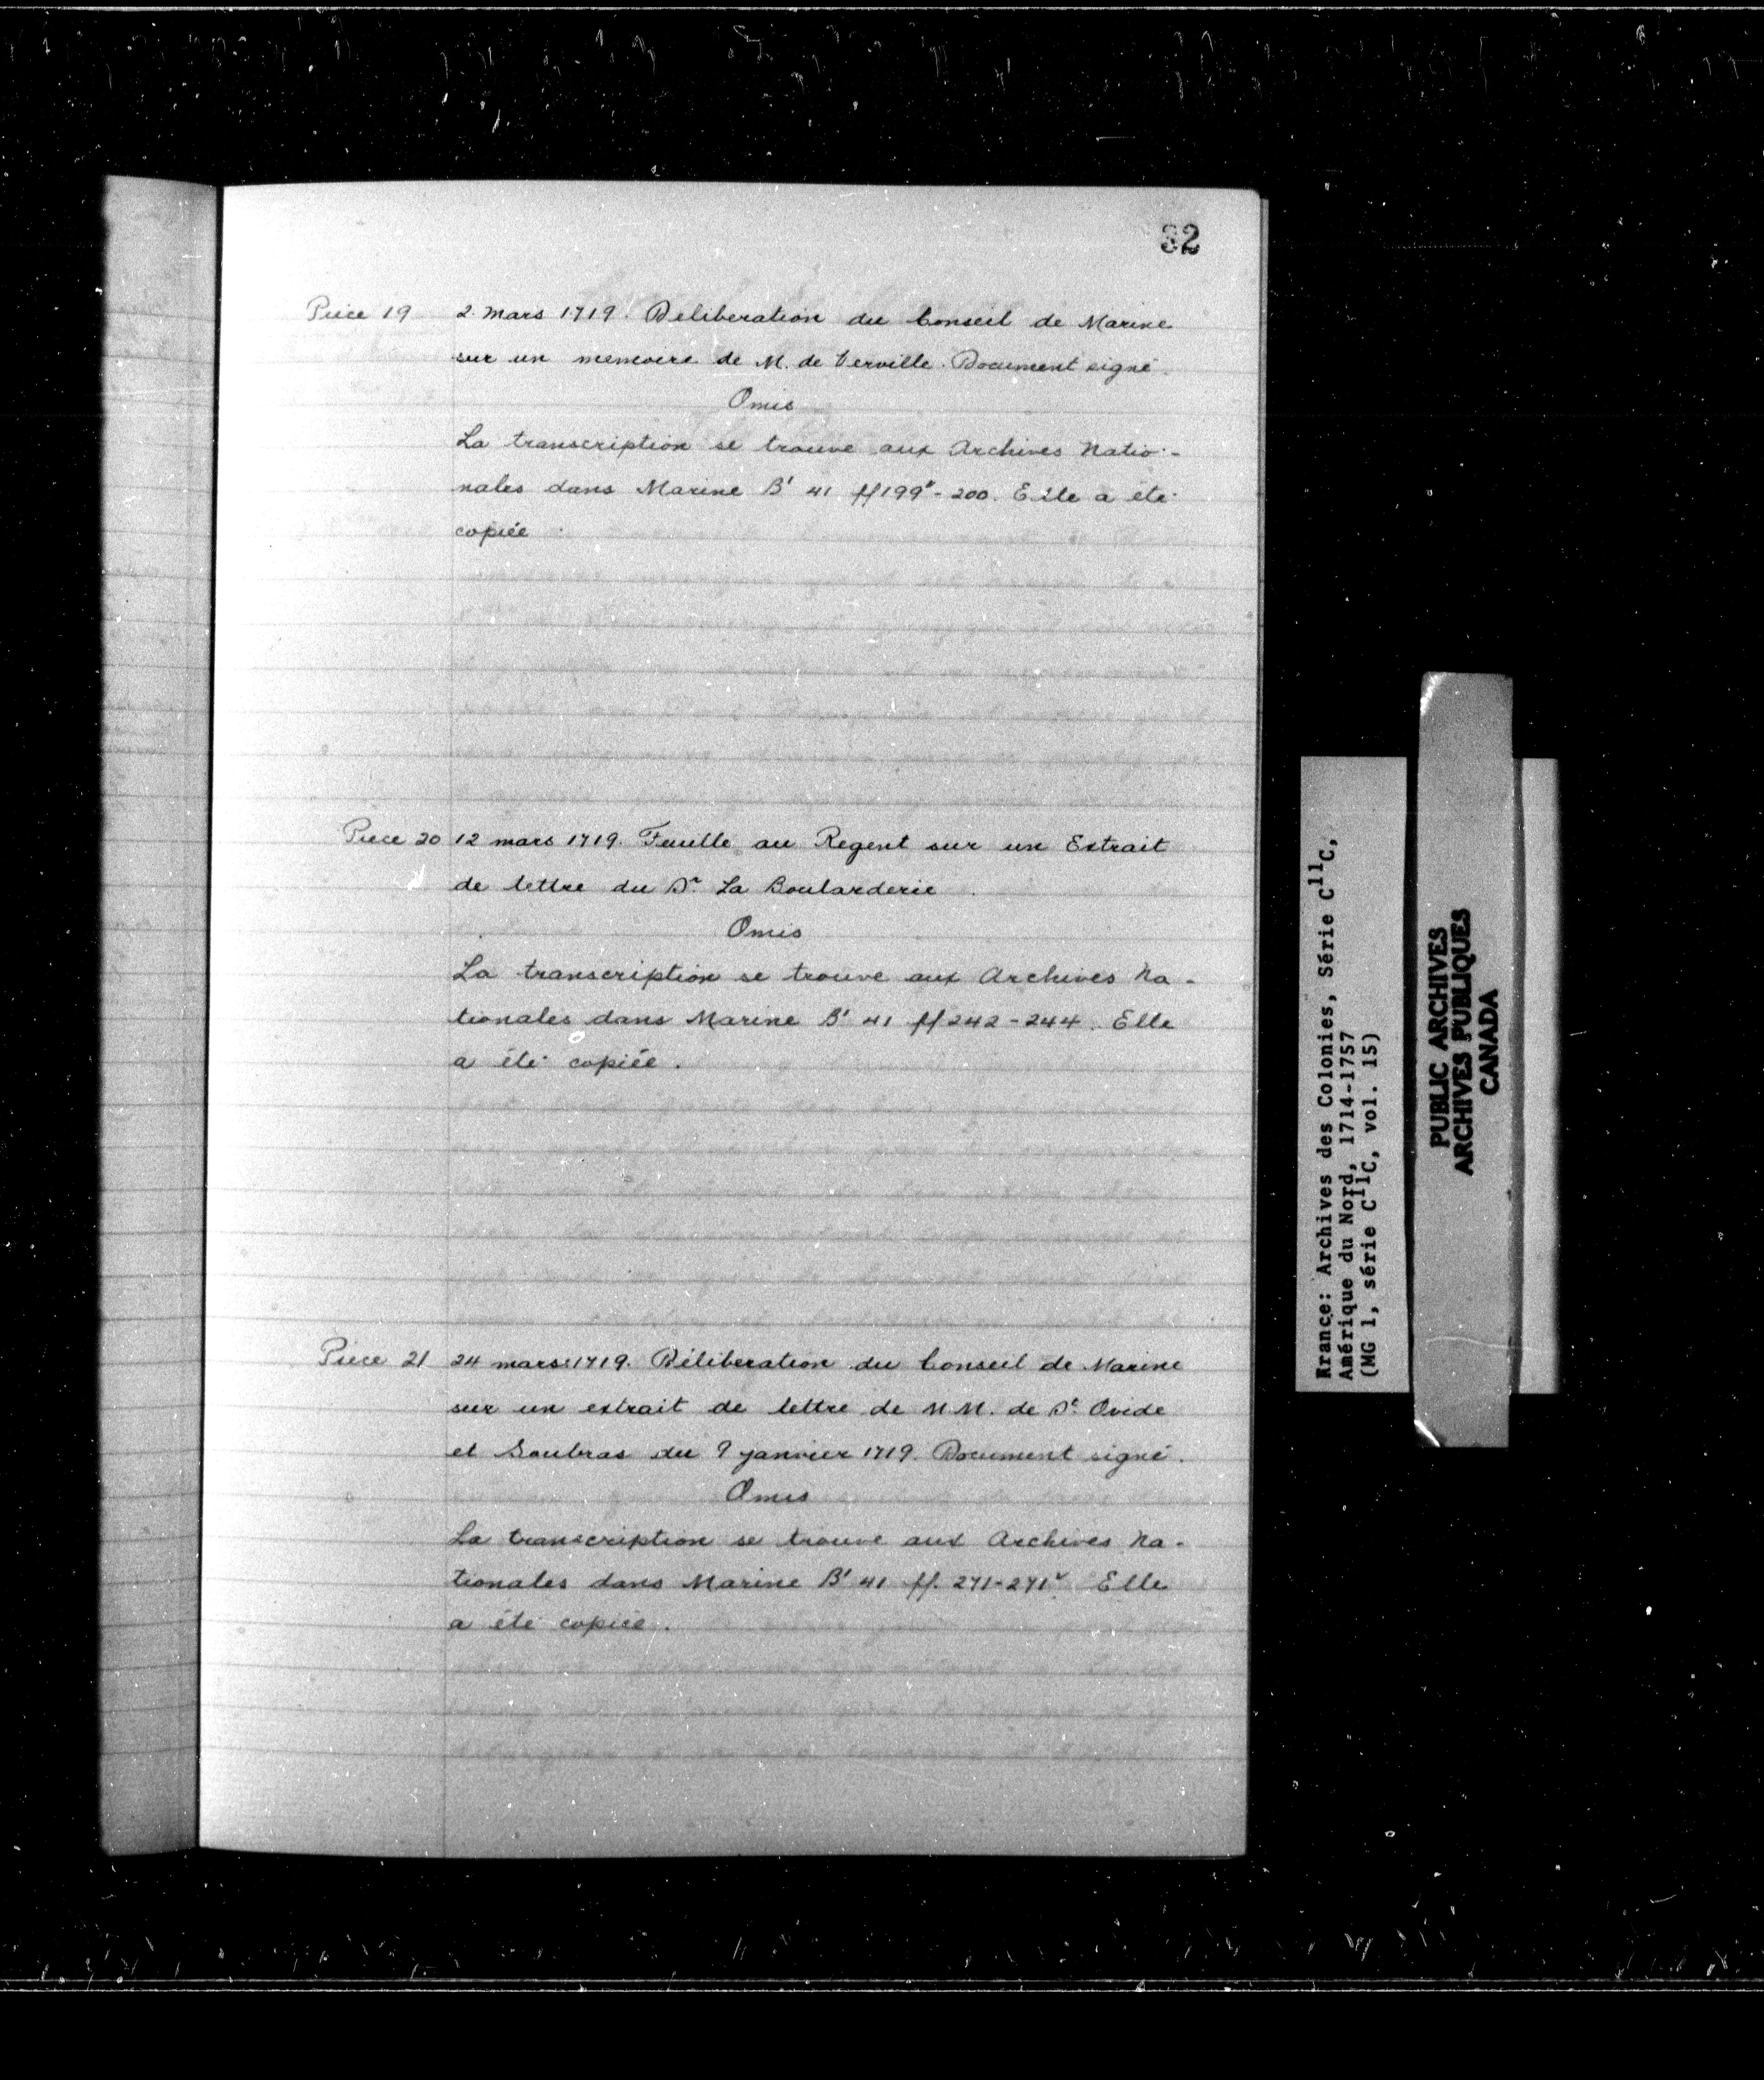 32
Pièce 19 2 mars 1719. Déliberation du Conseil de Marine
sur un memoire de M. de Verville. Document signé.
Omis
La transcription se trouve aux Archives Natio-
nales dans Marine B¹ 41 ff 199ᵛ-200. Elle a été
copiée
Pièce 20 12 mars 1719. Feuille au Regent sur un Extrait
de lettre du Sʳ La Boularderie.
Omis
La transcription se trouve aux Archives Na-
tionales dans Marine B¹ 41 ff 242-244. Elle
a été copiée.
Pièce 21 24 mars 1719. Déliberation du Conseil de Marine
sur un extrait de lettre de M.M. de Sᵗ Ovide
et Soubras du 9 janvier 1719. Document signé.
Omis
La transcription se trouve aux Archives Na-
tionales dans Marine B¹ 41 ff. 271-271ᵛ Elle
a été copiée.
France: Archives des Colonies, Série C¹¹C,
Amérique du Nord, 1714-1757
(MG 1, série C¹¹C, vol. 15)
PUBLIC ARCHIVES
ARCHIVES PUBLIQUES
CANADA